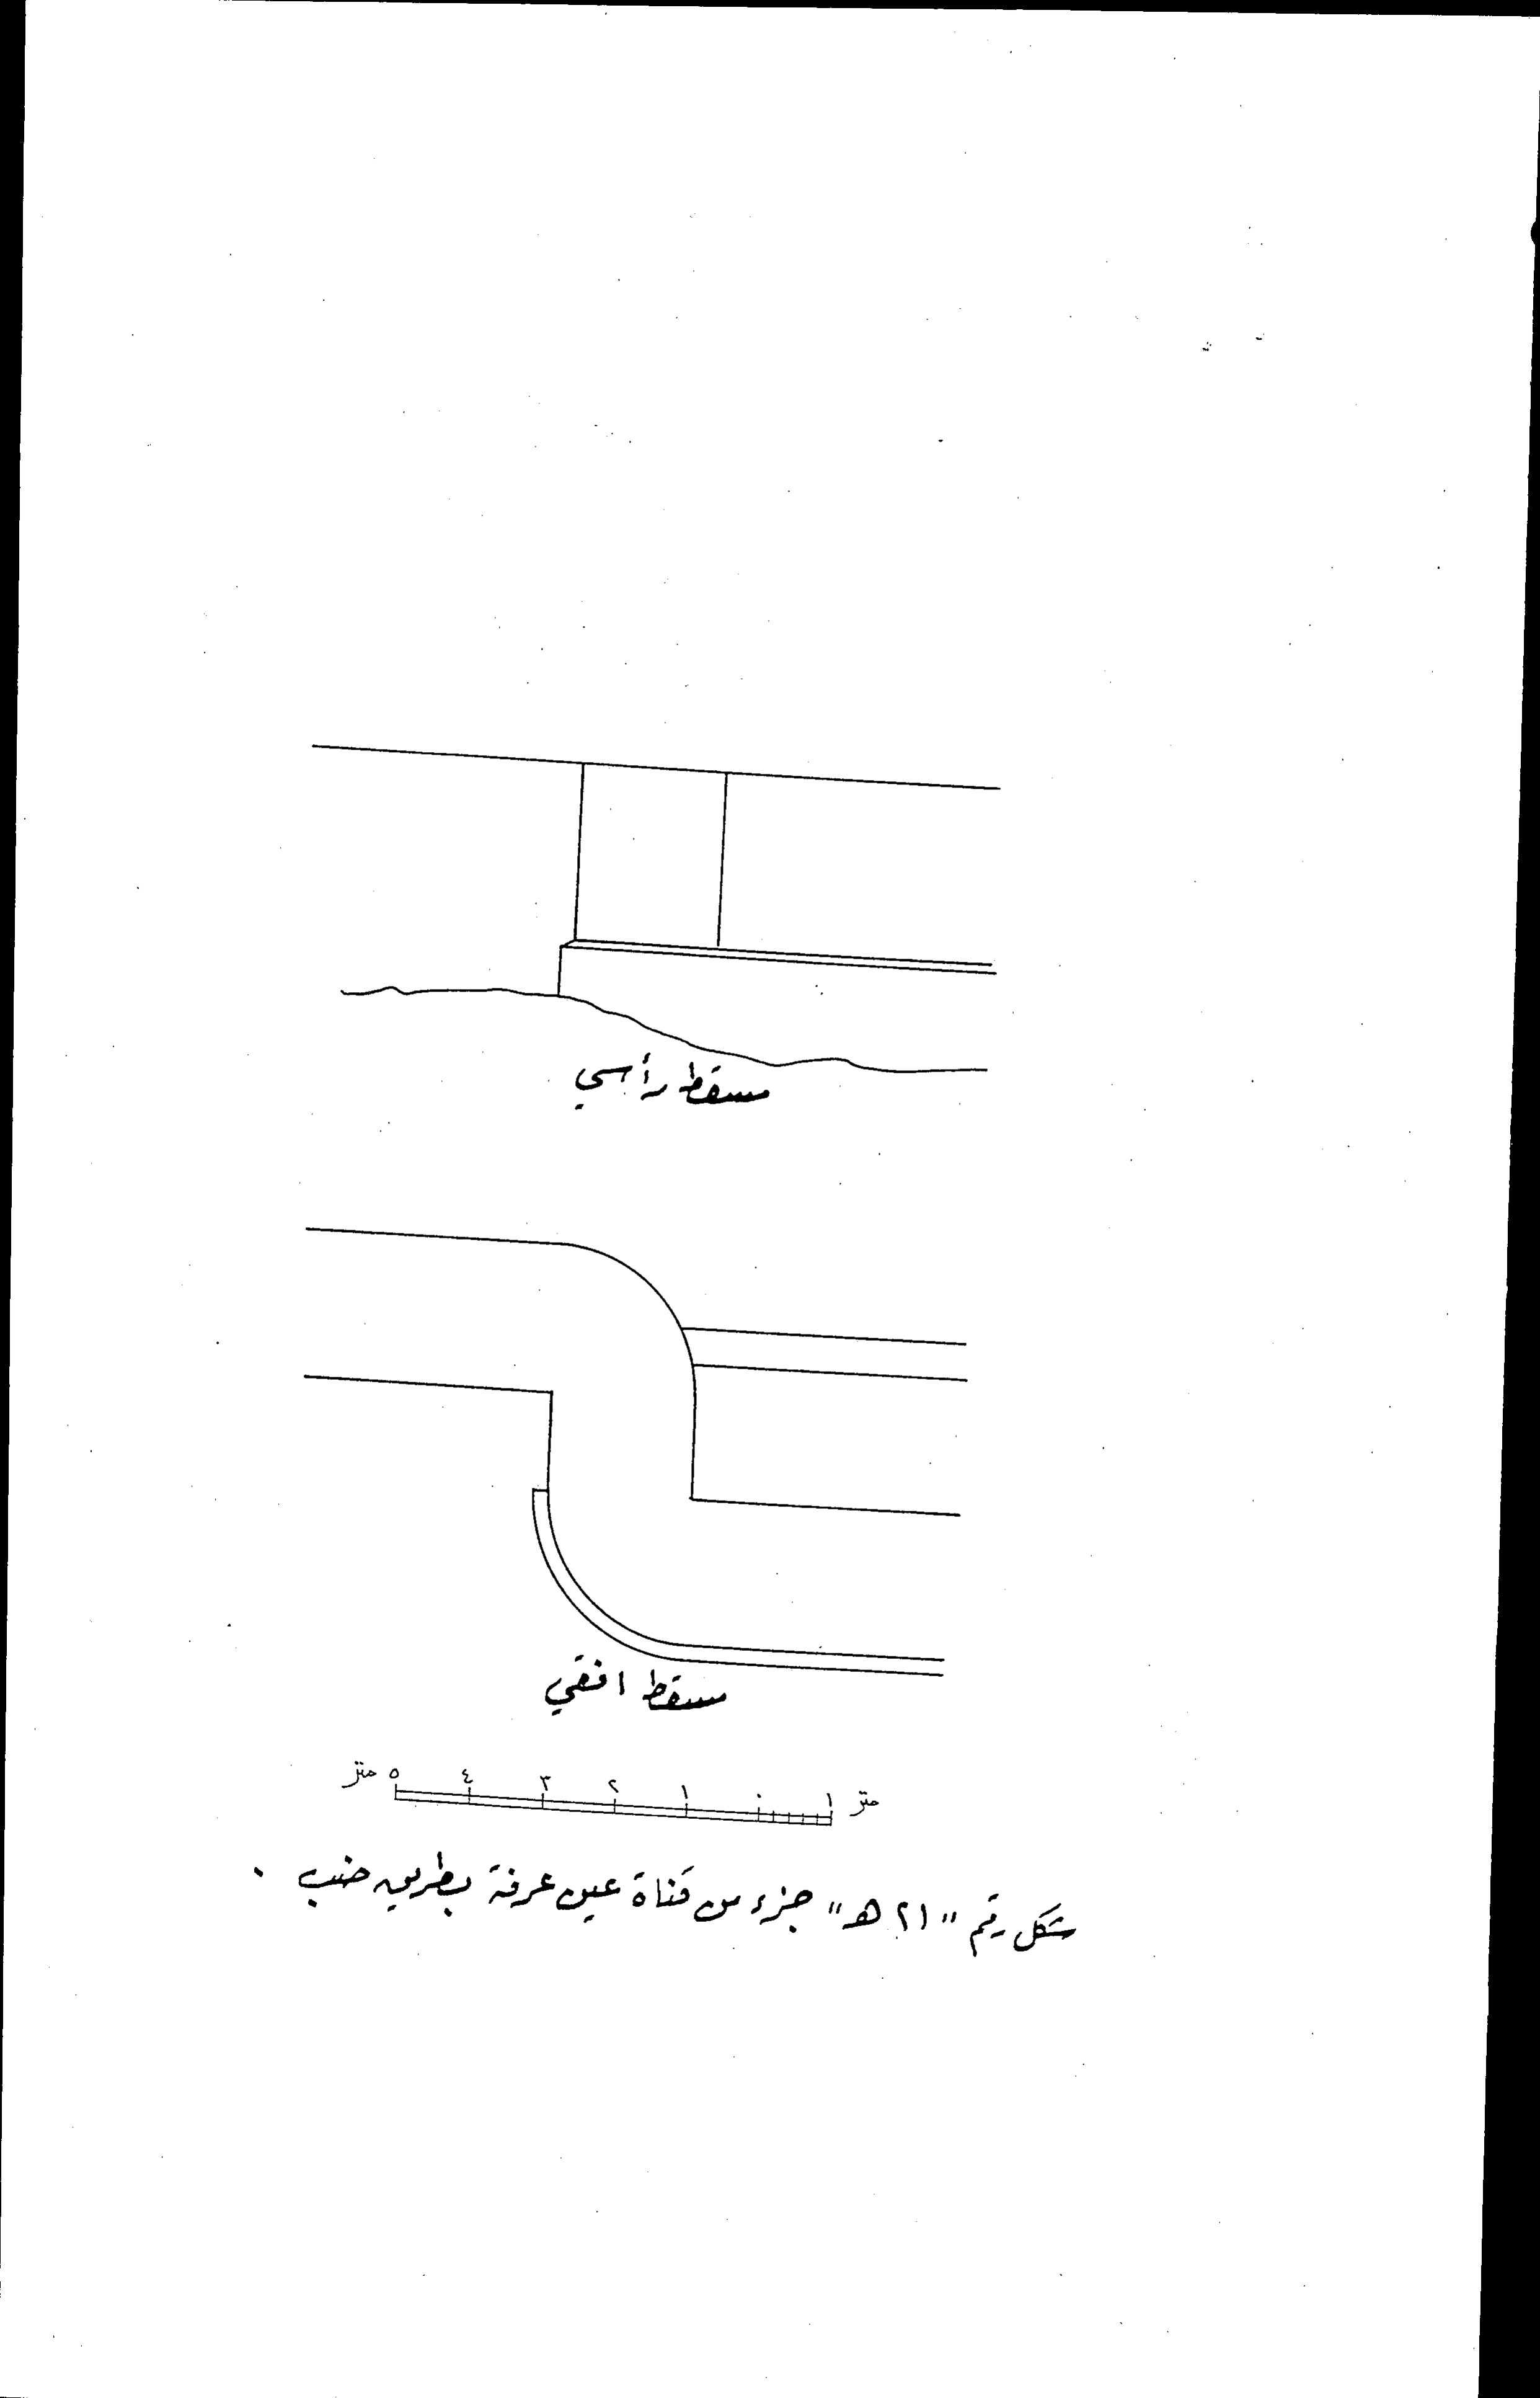 مسقط رأسي
مسقط افقي
متر ٥ ٤ ٣ ٢ ١ ٠ ١ متر
شكل رقم "٢١ هـ" جزء من قناة عين عرفة بطريق ضب .